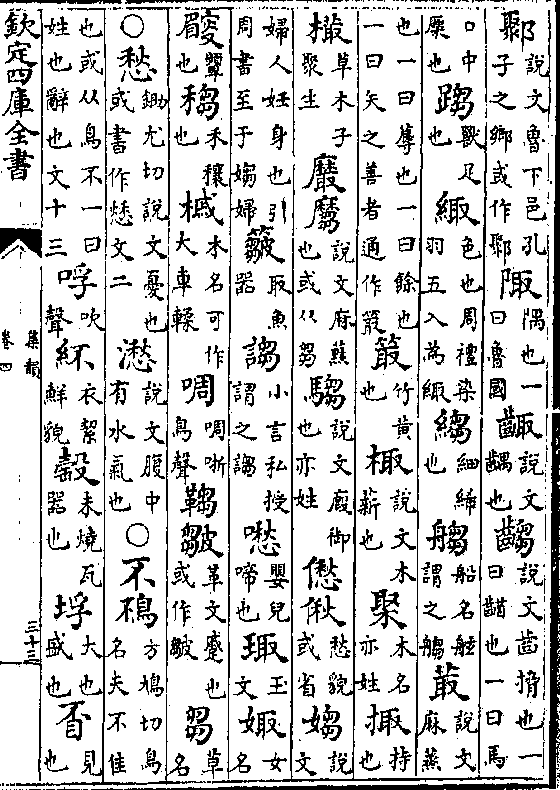 郰說文魯下邑孔子之鄉或作鄹陬隅也一曰魯國齱說文齵也齺說文齒搚也一曰齰也一曰馬
口中糜也獸足也緅色也周禮染羽五入為緅縐細絺也船名舷謂之菆說文麻蒸
也一曰蓐也一曰餘也一曰矢之善者通作菆竹黄也棷說文木薪也棸木名亦姓掫持也
草木子聚生黀說文麻蕉也或从芻騶說文廐御也亦姓偢愁貌或省媰說文
婦人妊身也引周書至于媰婦取魚器謅小言私授謂之謅嬰兒啼也玉文娵女名
顰也禾穰也槭木名可作大車輮啁啁哳鳥聲皺革文蹙也或作皺芻草名
○愁鋤尤切說文憂也或書作文二說文腹中有水氣也○不方鳩切鳥名夫不隹
也或从鳥不一曰姓也辭也文十三吹聲紑衣絜鮮貌未燒瓦器也垺大也盛也見也
欽定四庫全書
集韻
卷四
三十三